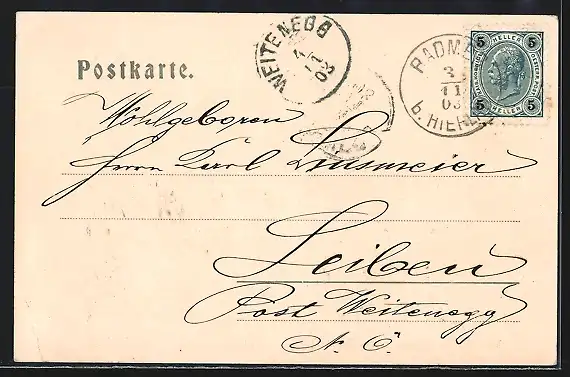 WEITENEGG
4
11
03
RADM
3
11
03
b. HIEFL
5 HELLER 5
5 HELLER 5
Postkarte.
Wohlgeboren
Herrn Karl
Leiben
Post Weitenegg
N. Ö.